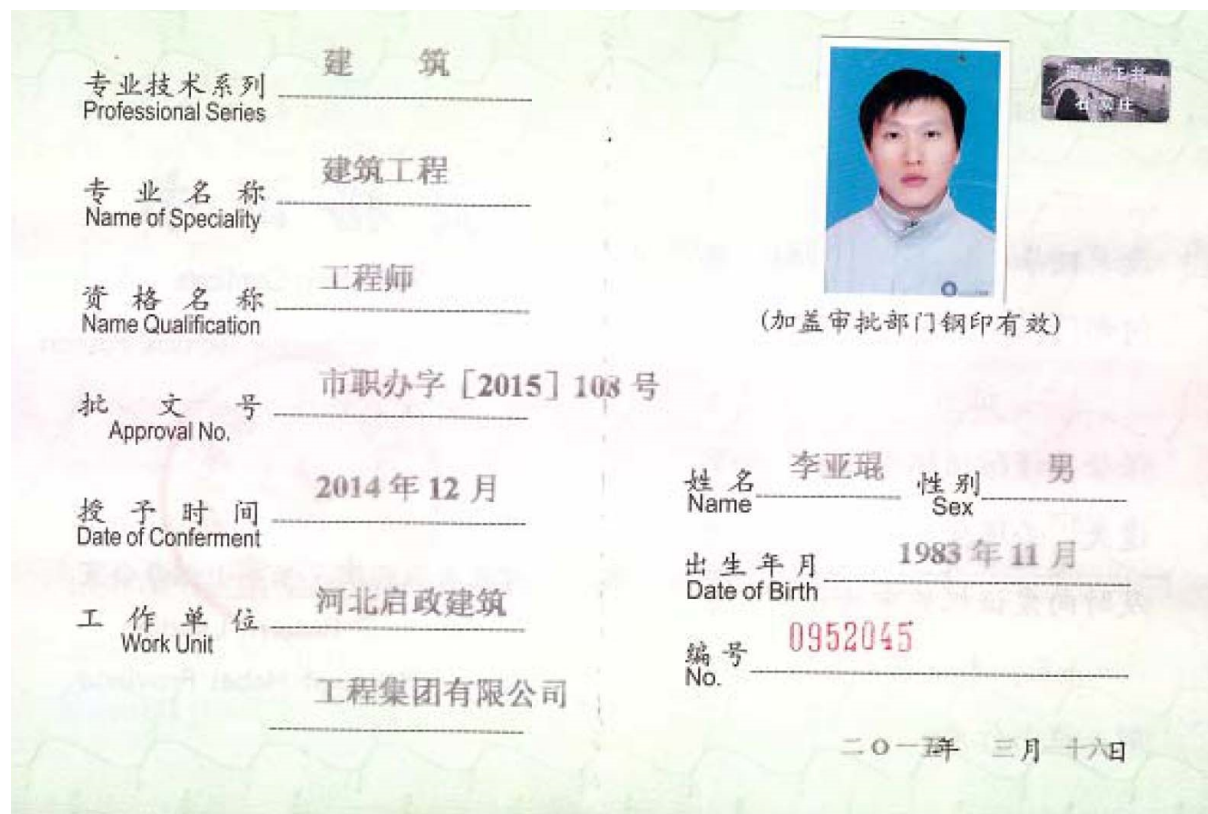 专业技术系列 建 筑
Professional Series
专业名称 建筑工程
Name of Speciality
资格名称 工程师
Name Qualification
批文号 市职办字［2015］108 号
Approval No.
授予时间 2014 年 12 月
Date of Conferment
工作单位 河北启政建筑
Work Unit
工程集团有限公司
资格证书
石家庄
(加盖审批部门钢印有效)
姓名 李亚琨 性别 男
Name Sex
出生年月 1983 年 11 月
Date of Birth
编号 0952045
No.
二〇一五年 三月 十六日